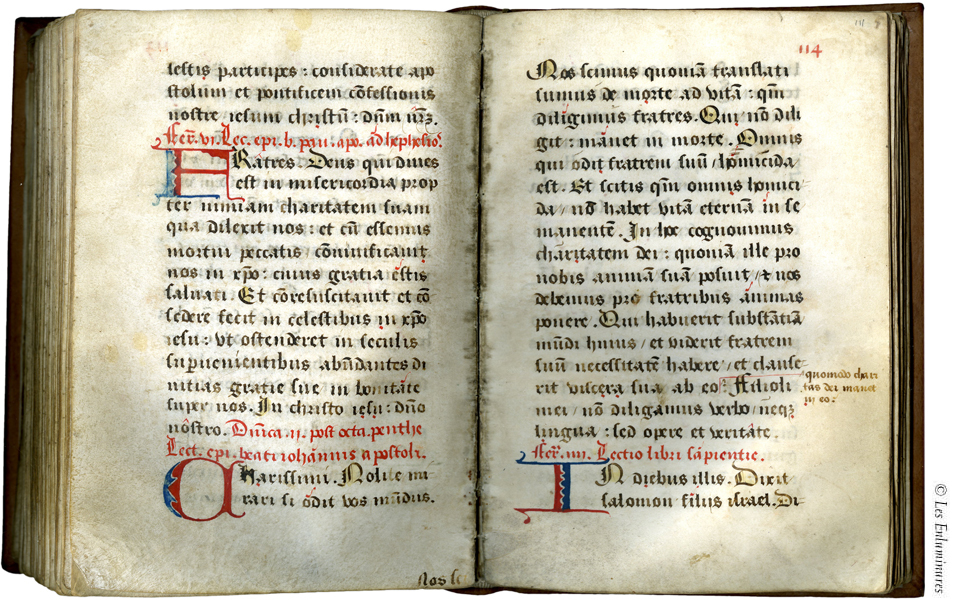 lestis participes : considerate apo
stolum et pontificem cōfessionis
nostre / iesum christū : dñm nr̄ꝫ.
Fer. vi. Lec. epi. b. pau. apo. ad hephesio.
FRatres. Deus qui diues
est in misericordia prop
ter nimiam charitatem suam
qua dilexit nos : et cū essemus
mortui peccatis / cōuiuificauit
nos in xp̄o : cuius gratia estis
saluati. Et cōresuscitauit et cō
sedere fecit in celestibus in xp̄o
iesu : vt ostenderet in seculis
superuenientibus abūdantes di
uitias gratie sue / in bonitate
super nos. In christo iesu : dn̄o
nostro. Dn̄ica. ii. post octa. penthe
Lect. epi. beati iohannis apostoli.
CHarissimi. Nolite mi
rari si odit vos mūdus.
Nos sc
111
114
Nos scimus quoniā translati
sumus de morte ad vitā : qm̄
diligimus fratres. Qui nō dili
git : manet in morte. Omnis
qui odit fratrem suū / homicida
est. Et scitis qm̄ omnis homici-
da / nō habet vitā eternā in se
manentē. In hoc cognouimus
charitatem dei : quoniā ille pro
nobis animā suā posuit / et nos
debemus pro fratribus animas
ponere. Qui habuerit substātiā
mūdi huius / et viderit fratrem
suū necessitatē habere / et clause
rit viscera sua ab eo : Filioli
quomodo chari
tas dei manet
in eo:
mei / nō diligamus verbo / neqꝫ
lingua : sed opere et veritate.
Fer. iiii. Lectio libri sapientie.
IN diebus illis. Dixit
salomon filiis israel. Di-
© Les Enluminures